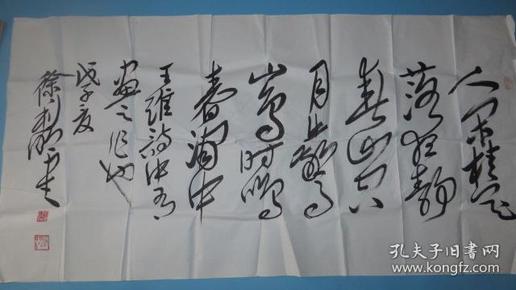 人闲桂花
落夜静
春山空
月出驚
山鸟时鸣
春澗中
王维诗中有
画之作也
戊子夏
徐
孔夫子旧书网
www.kongfz.com